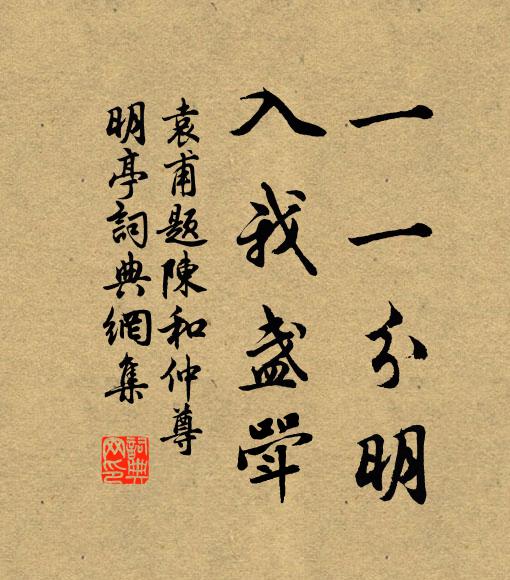 一一分明
入我盞斝
袁甫題陳和仲尊
明亭詞典網集
詞典網印